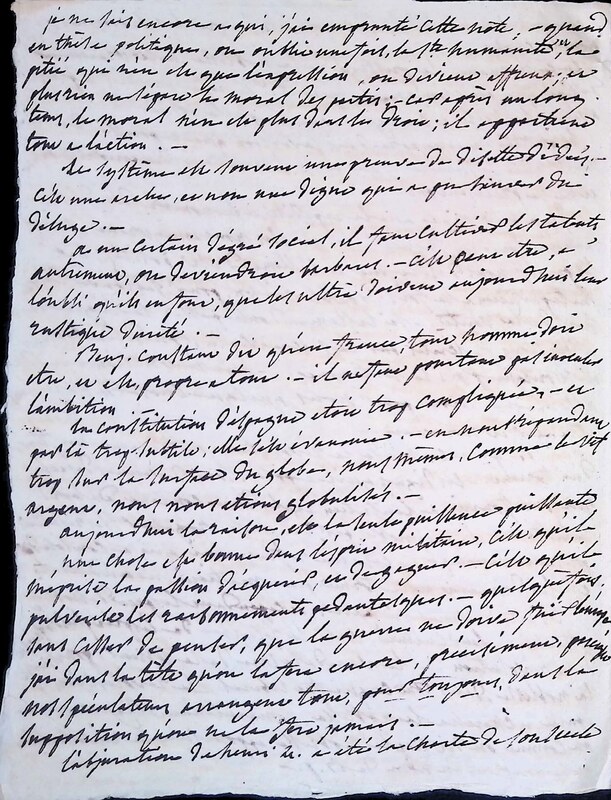 je ne sais encore a qui, j'ai emprunté cette note, – quand
en thèse politique, on oublie une fois, la Ste humanité, la
pitié qui n'en est que l'expression, on devient affreux, et
plus rien ne sépare le moral des partis; – car après un long
tems, le moral n'en est plus dans les droits; il appartient
tout a l'action. . –
Le système est souvent une preuve de disette d'idées. –
C'est une arche, et non une digue qui a pu sauver du
déluge. –
a un certain dégré social, il faut cultiver les talents
autrement, on deviendroit barbares. – C'est peut etre, a
l'oubli qu'ils en font, que les ultra doivent aujourd'hui leur
rustique dureté. –
Benj. Constant dit qu'en france, tout homme doit
etre, et est, propre a tout. – il ne faut pourtant pas inoculer
l'ambition. –
la constitution d'espagne etoit trop compliquée, – et
par là trop subtile; elle s'est évanouie. – en nous répandant
trop sur la surface du globe, nous memes, comme le vif
argent, nous nous etions globulisés. –
aujourd'hui la raison, est la seule puissance puissante
une chose est bonne dans l'esprit militaire, c'est qu'il
méprise la passion d'acquerir, et de gagner. – C'est qu'il
pulvérise les raisonnements pedantesques. – quelquefois
sans cesser de penser, que la guerre ne doive
j'ai dans la tête qu'on la fera encore, précisément, parceque
nos spéculateurs arrangent tout, pour toujours, dans la
supposition qu'on ne la fera jamais. –
l'abjuration de henri 4. a été la charte de son siècle